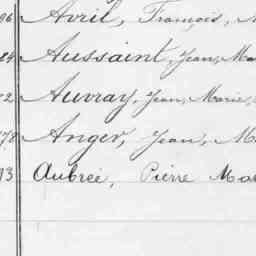 96 Avril, François, M
84 Aussaint, Jean, Ma
72 Auvray, Jean, Marie,
178 Anger, Jean, M
73 Aubreé, Pierre Ma